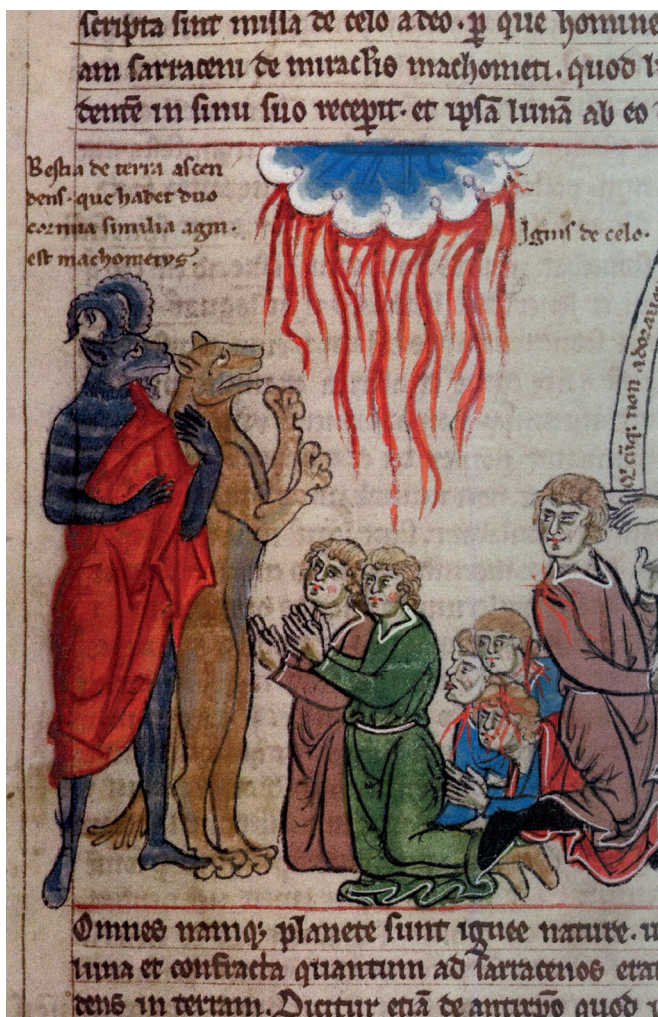 scripta sint missa de celo a deo. p que homine
am sarraceni de miraclis machometi. quod l
dente in sinu suo recepit. et ipsa luna ab eo
Bestia de terra ascen
dens. que habet duo
cornua similia agni.
est machometus
Ignis de celo.
non adoraue
Omnes namq; planete sunt ignee nature. u
luna et confracta quantum ad sarracenos erat
dens in terram. Dicitur etiā de antixp̄o quod